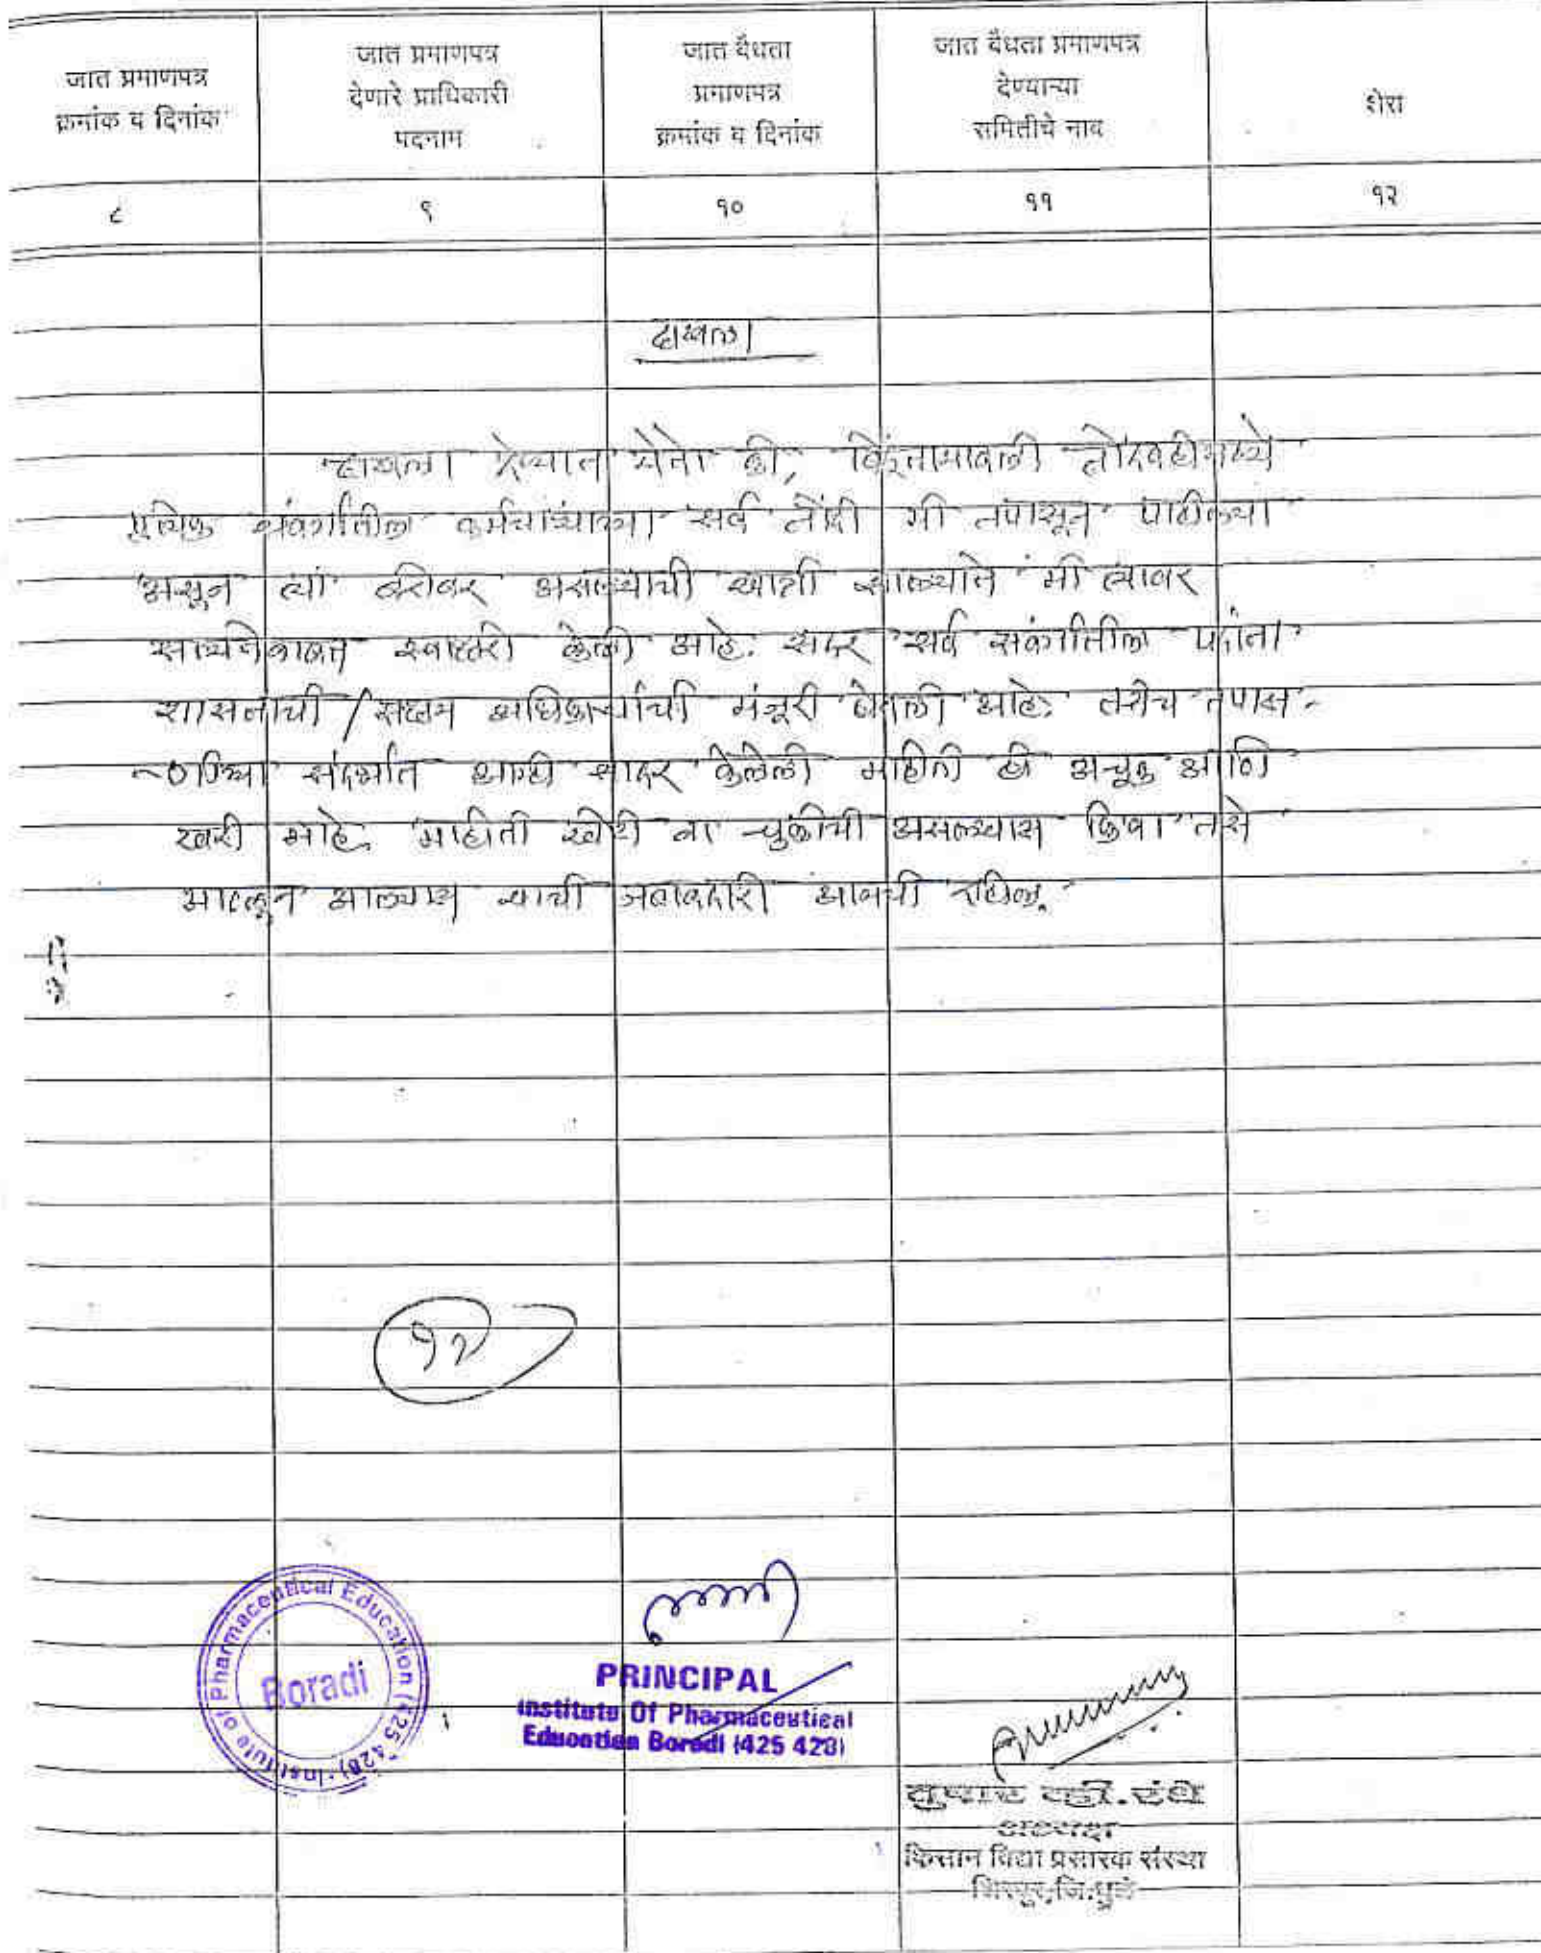 जात प्रमाणपत्र
क्रमांक व दिनांक
जात प्रमाणपत्र
देणारे प्राधिकारी
पदनाम
जात वैधता
प्रमाणपत्र
क्रमांक व दिनांक
जात वैधता प्रमाणपत्र
देण्याऱ्या
समितीचे नाव
शेरा
८ ९ १० ११ १२
दाखला
दाखला देण्यात येतो की, बिंदूनामावली नोंदवहीमध्ये
प्रत्येक संवर्गातील कर्मचाऱ्यांच्या सर्व नोंदी मी तपासून पाहील्या
असून त्या बरोबर असल्याची खात्री झाल्याने मी त्यावर
स्वाक्षरी केली आहे. सदर सर्व संवर्गातील पदांना
शासनाची / सक्षम अधिकाऱ्यांची मंजूरी घेतली आहे. तसेच तपास-
-णीच्या संदर्भात आम्ही सादर केलेली माहीती ही अचूक आणि
खरी आहे. माहीती खोटी वा चुकीची असल्यास किंवा तसे
आढळून आल्यास त्याची जबाबदारी आमची राहील.
१२
Institute of Pharmaceutical Education (425 428)
Boradi
PRINCIPAL
Institute Of Pharmaceutical
Education Boradi (425 428)
तुषार व्ही. रंधे
अध्यक्ष
किसान विद्या प्रसारक संस्था
शिरपूर, जि. धुळे